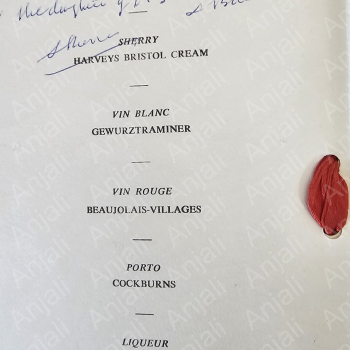 the daughter of
SHERRY
HARVEYS BRISTOL CREAM
VIN BLANC
GEWURZTRAMINER
VIN ROUGE
BEAUJOLAIS-VILLAGES
PORTO
COCKBURNS
LIQUEUR